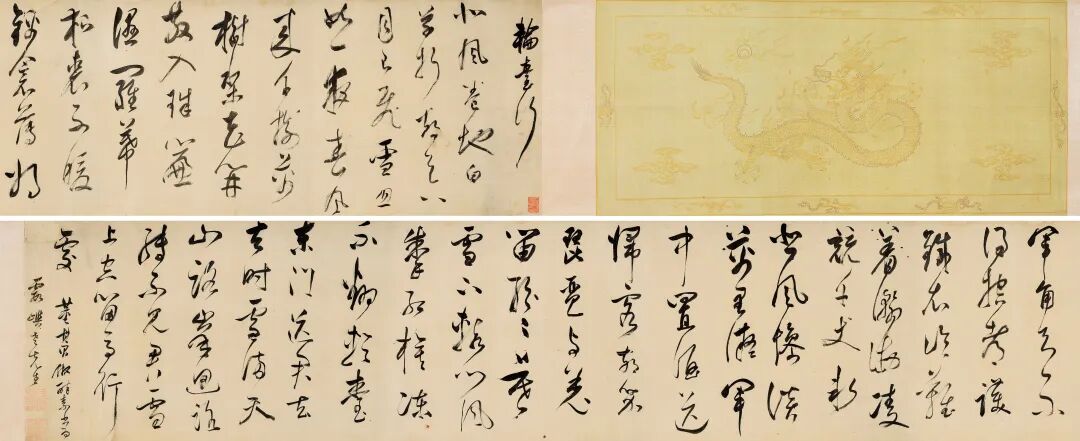 輪臺行
北風卷地白
草折胡天八
月已飛雪忽
如一夜春風
來千樹萬
樹梨花開
散入珠簾
濕羅幕
狐裘不暖
錦衾薄將
軍角弓不
得控都護
鐵衣冷難
著瀚海凌
兢千丈
慘淡
萬里凝軍
中置酒送
歸客胡琴
琵琶与羌
笛紛紛暮
雪下轅門風
掣紅旗凍
不翻輪臺
東門送君去
去時雪滿天
山路峰迴路
轉不見君雪
上空留馬行
處 董其昌
老先生